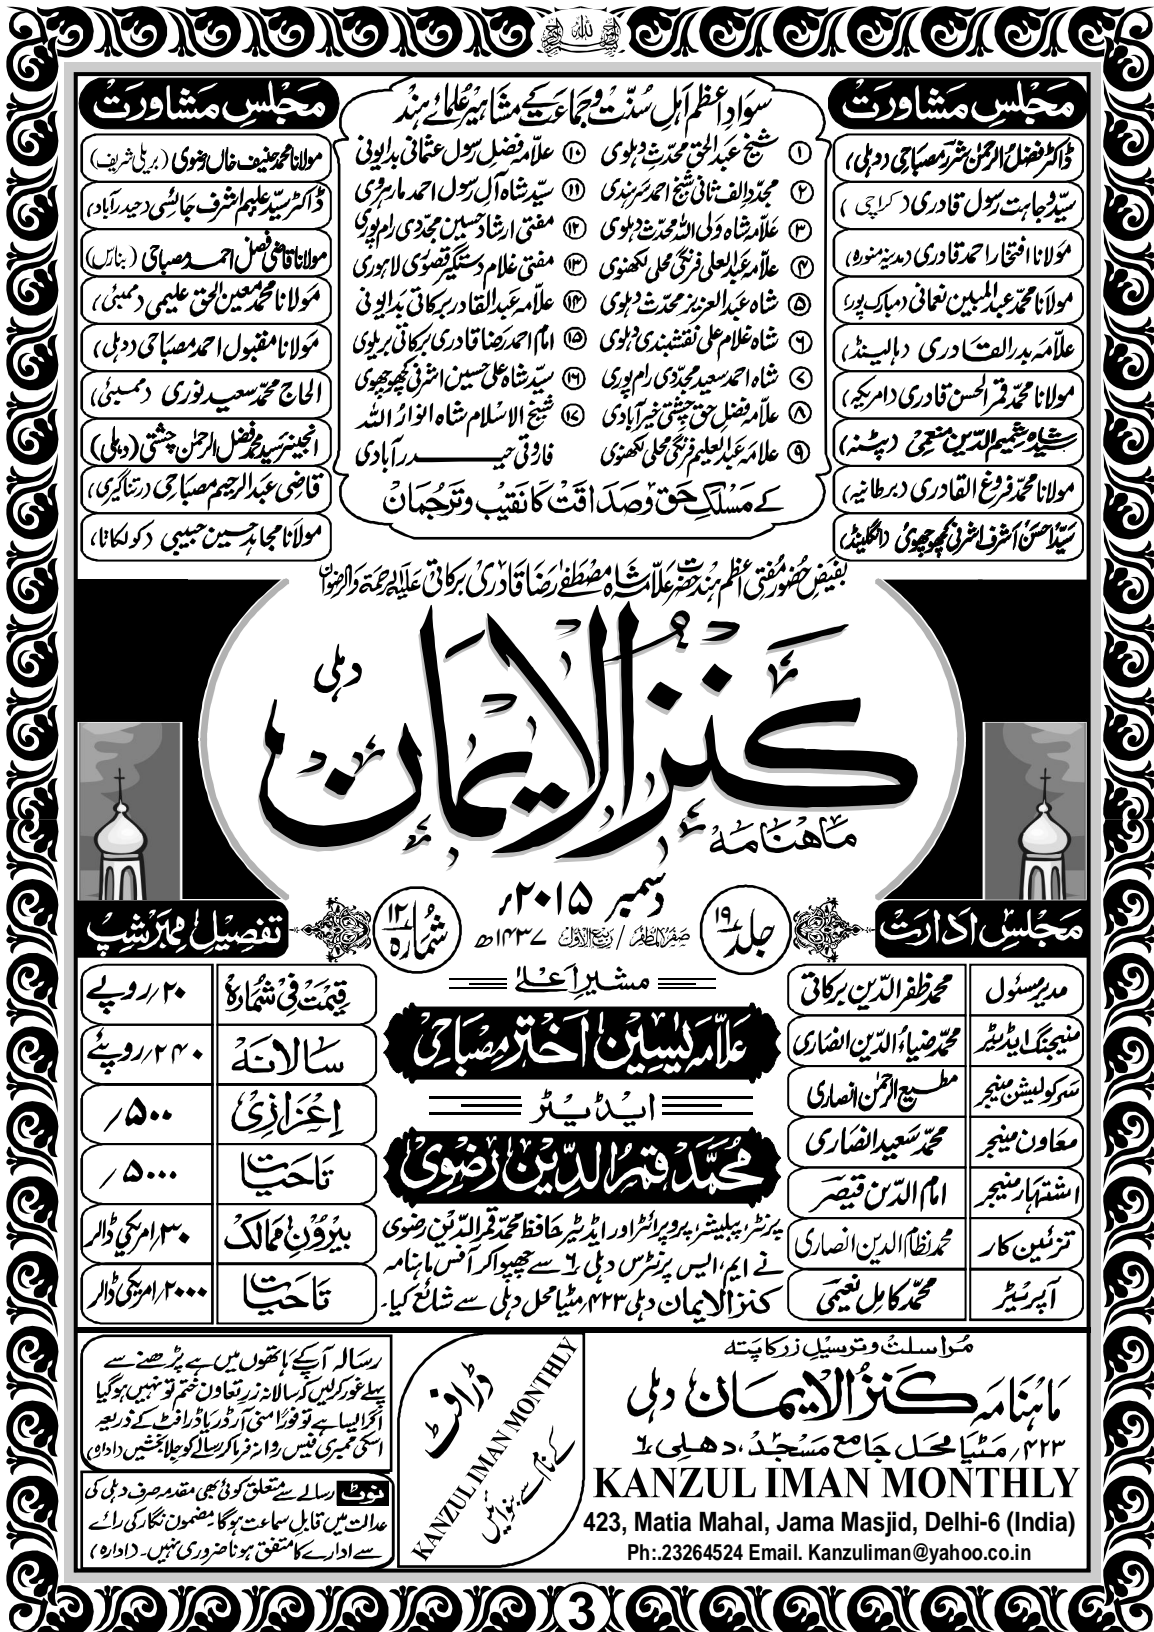 مجلسِ مشاورت
ڈاکٹر فضل الرحمٰن شرر مصباحی (دہلی)
سید وجاہت رسول قادری (کراچی)
مولانا افتخار احمد قادری (مدینہ منورہ)
مولانا محمد عبدالمبین نعمانی (مبارک پور)
علامہ بدر القادری (ہالینڈ)
مولانا محمد قمر الحسن قادری (امریکہ)
سید شاہ شمیم الدین منعمی (پٹنہ)
مولانا محمد فروغ القادری (برطانیہ)
سید احسن اشرف اشرفی کچھوچھوی (انگلینڈ)
سوادِ اعظم اہلِ سنّت و جماعت کے مشاہیر علمائے ہند
۱ شیخ عبدالحق محدث دہلوی
۲ مجدد الف ثانی شیخ احمد سرہندی
۳ علامہ شاہ ولی اللہ محدث دہلوی
۴ علامہ عبدالعلی فرنگی محلی لکھنوی
۵ شاہ عبدالعزیز محدث دہلوی
۶ شاہ غلام علی نقشبندی دہلوی
۷ شاہ احمد سعید مجددی رام پوری
۸ علامہ فضل حق چشتی خیرآبادی
۹ علامہ عبدالعلیم فرنگی محلی لکھنوی
۱۰ علامہ فضل رسول عثمانی بدایونی
۱۱ سید شاہ آل رسول احمد مارہروی
۱۲ مفتی ارشاد حسین مجددی رام پوری
۱۳ مفتی غلام دستگیر قصوری لاہوری
۱۴ علامہ عبدالقادر برکاتی بدایونی
۱۵ امام احمد رضا قادری برکاتی بریلوی
۱۶ سید شاہ علی حسین اشرفی کچھوچھوی
۱۷ شیخ الاسلام شاہ انوار اللہ
فاروقی حیدرآبادی
کے مسلکِ حق و صداقت کا نقیب و ترجمان
مجلسِ مشاورت
مولانا محمد حنیف خاں رضوی (بریلی شریف)
ڈاکٹر سید علیم اشرف جائسی (حیدرآباد)
مولانا قاضی فضل احمد مصباحی (بنارس)
مولانا محمد معین الحق علیمی (ممبئی)
مولانا مقبول احمد مصباحی (دہلی)
الحاج محمد سعید نوری (ممبئی)
انجینئر سید محمد فضل الرحمٰن چشتی (دہلی)
قاضی عبدالرحیم مصباحی (رتناگیری)
مولانا مجاہد حسین حبیبی (کولکاتا)
بفیضِ حضور مفتی اعظم ہند حضرت علامہ شاہ مصطفےٰ رضا قادری برکاتی علیہ الرحمۃ والرضوان
ماہنامہ کنز الایمان دہلی
دسمبر ۲۰۱۵ء
جلد ۱۹
صفر المظفر / ربیع الاول ۱۴۳۷ھ
شمارہ ۱۲
مجلسِ ادارت
مدیر مسئول محمد ظفر الدین برکاتی
منیجنگ ایڈیٹر محمد ضیاء الدین انصاری
سرکولیشن منیجر مطیع الرحمٰن انصاری
معاون منیجر محمد سعید انصاری
اشتہار منیجر امام الدین قیصر
تزئین کار محمد نظام الدین انصاری
آپریٹر محمد کامل نعیمی
مشیرِ اعلیٰ
علامہ یٰسین اختر مصباحی
ایڈیٹر
محمد قمر الدین رضوی
پرنٹر، پبلیشر، پروپرائٹر اور ایڈیٹر حافظ محمد قمر الدین رضوی
نے ایم، ایس پرنٹرس دہلی ۶ سے چھپوا کر آفس ماہنامہ
کنز الایمان دہلی ۴۲۳، مٹیا محل دہلی سے شائع کیا۔
تفصیلِ ممبرشپ
قیمت فی شمارہ ۲۰/روپے
سالانہ ۲۴۰/روپئے
اعزازی ۵۰۰/
تاحیات ۵۰۰۰/
بیرونِ ممالک ۳۰/امریکی ڈالر
تاحیات ۲۰۰۰/امریکی ڈالر
مراسلت و ترسیل زر کا پتہ
ماہنامہ کنز الایمان دہلی
۴۲۳، مٹیا محل جامع مسجد، دہلی ۶
KANZUL IMAN MONTHLY
423, Matia Mahal, Jama Masjid, Delhi-6 (India)
Ph:.23264524 Email. Kanzuliman@yahoo.co.in
ڈرافٹ
KANZUL IMAN MONTHLY
کے نام سے بنوائیں
رسالہ آپ کے ہاتھوں میں ہے پڑھنے سے
پہلے غور کر لیں کہ سالانہ زرِ تعاون ختم تو نہیں ہو گیا
اگر ایسا ہے تو فوراً منی آرڈر یا ڈرافٹ کے ذریعہ
اسکی ممبری فیس روانہ فرما کر رسالے کو جلا بخشیں (ادارہ)
نوٹ رسالے سے متعلق کوئی بھی مقدمہ صرف دہلی کی
عدالت میں قابلِ سماعت ہوگا مضمون نگار کی رائے
سے ادارے کا متفق ہونا ضروری نہیں۔ (ادارہ)
3